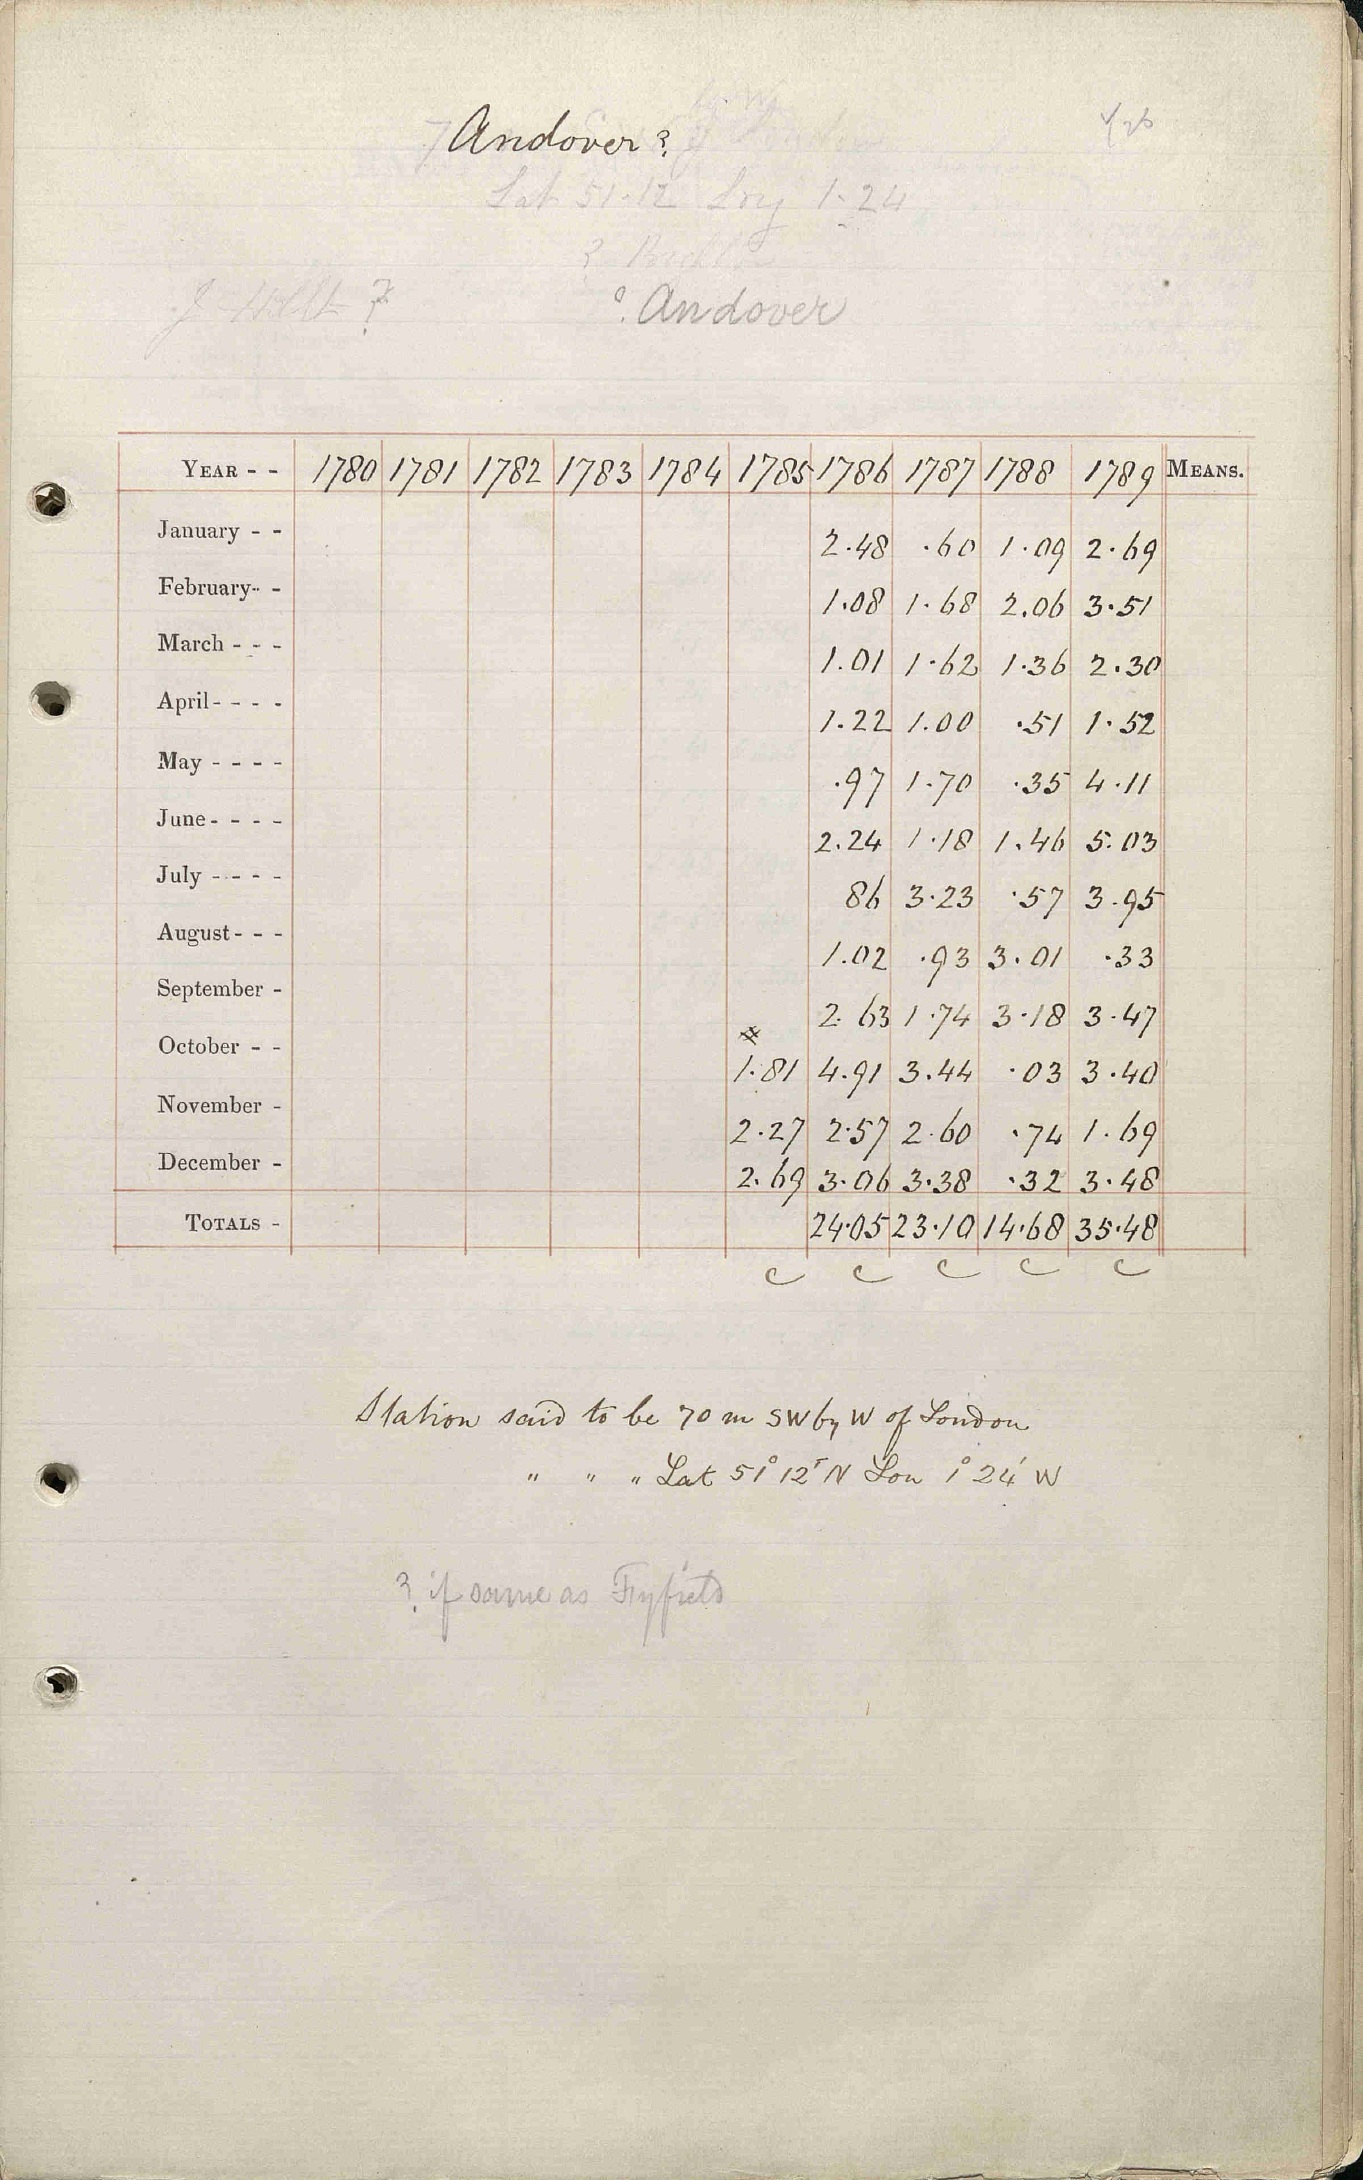 Andover ?
Lat 51-12 Long 1-24
?
? Andover
YEAR - - 1780 1781 1782 1783 1784 1785 1786 1787 1788 1789 MEANS.
January - - 2.48 .60 1.09 2.69
February - - 1.08 1.68 2.06 3.51
March - - - 1.01 1.62 1.36 2.30
April - - - - 1.22 1.00 .51 1.52
May - - - - .97 1.70 .35 4.11
June - - - - 2.24 1.18 1.46 5.03
July - - - - 86 3.23 .57 3.95
August - - - 1.02 .93 3.01 .33
September - 2.63 1.74 3.18 3.47
October - - 1.81 4.91 3.44 .03 3.40
November - 2.27 2.57 2.60 .74 1.69
December - 2.69 3.06 3.38 .32 3.48
TOTALS - 24.05 23.10 14.68 35.48
c c c c c
Station said to be 70 m SW by W of London
" " " Lat 51° 12' N Lon 1° 24' W
? if same as Fyfield